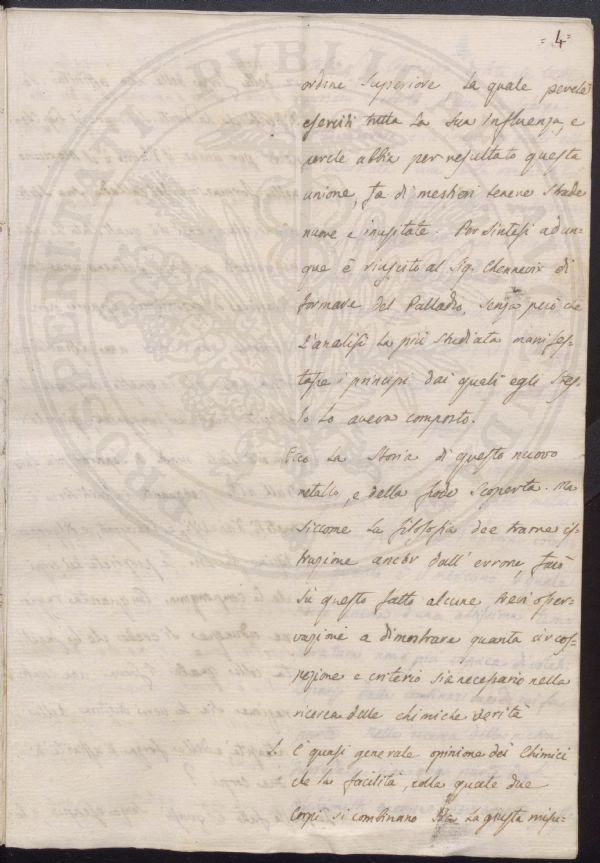 = 4 =
ordine superiore la quale perchè
eserciti tutta la sua influenza, e
perchè abbia per resultato questa
unione, fa di mestieri tenere strade
nuove e inusitate. Per sintesi adun-
que è riuscito al Sig. Chennevix di
formare del Palladio, senza però che
l'analisi la più studiata manifes-
tasse i principj dai quali egli stes-
so lo aveva composto.
Ecco la Storia di questo nuovo
metallo, e della frode scoperta. Ma
siccome la filosofia dee trarre is-
truzione ancor dall'errore, farò
su questo fatto alcune brevi osser-
vazione a dimostrare quanta circos-
pezione e criterio sia necessario nella
ricerca delle chimiche verità
1. E' quasi generale opinione dei Chimici
che la facilità, colla quale due
Corpi si combinano sia la giusta misu-
PROSPERITATI PVBLICAE